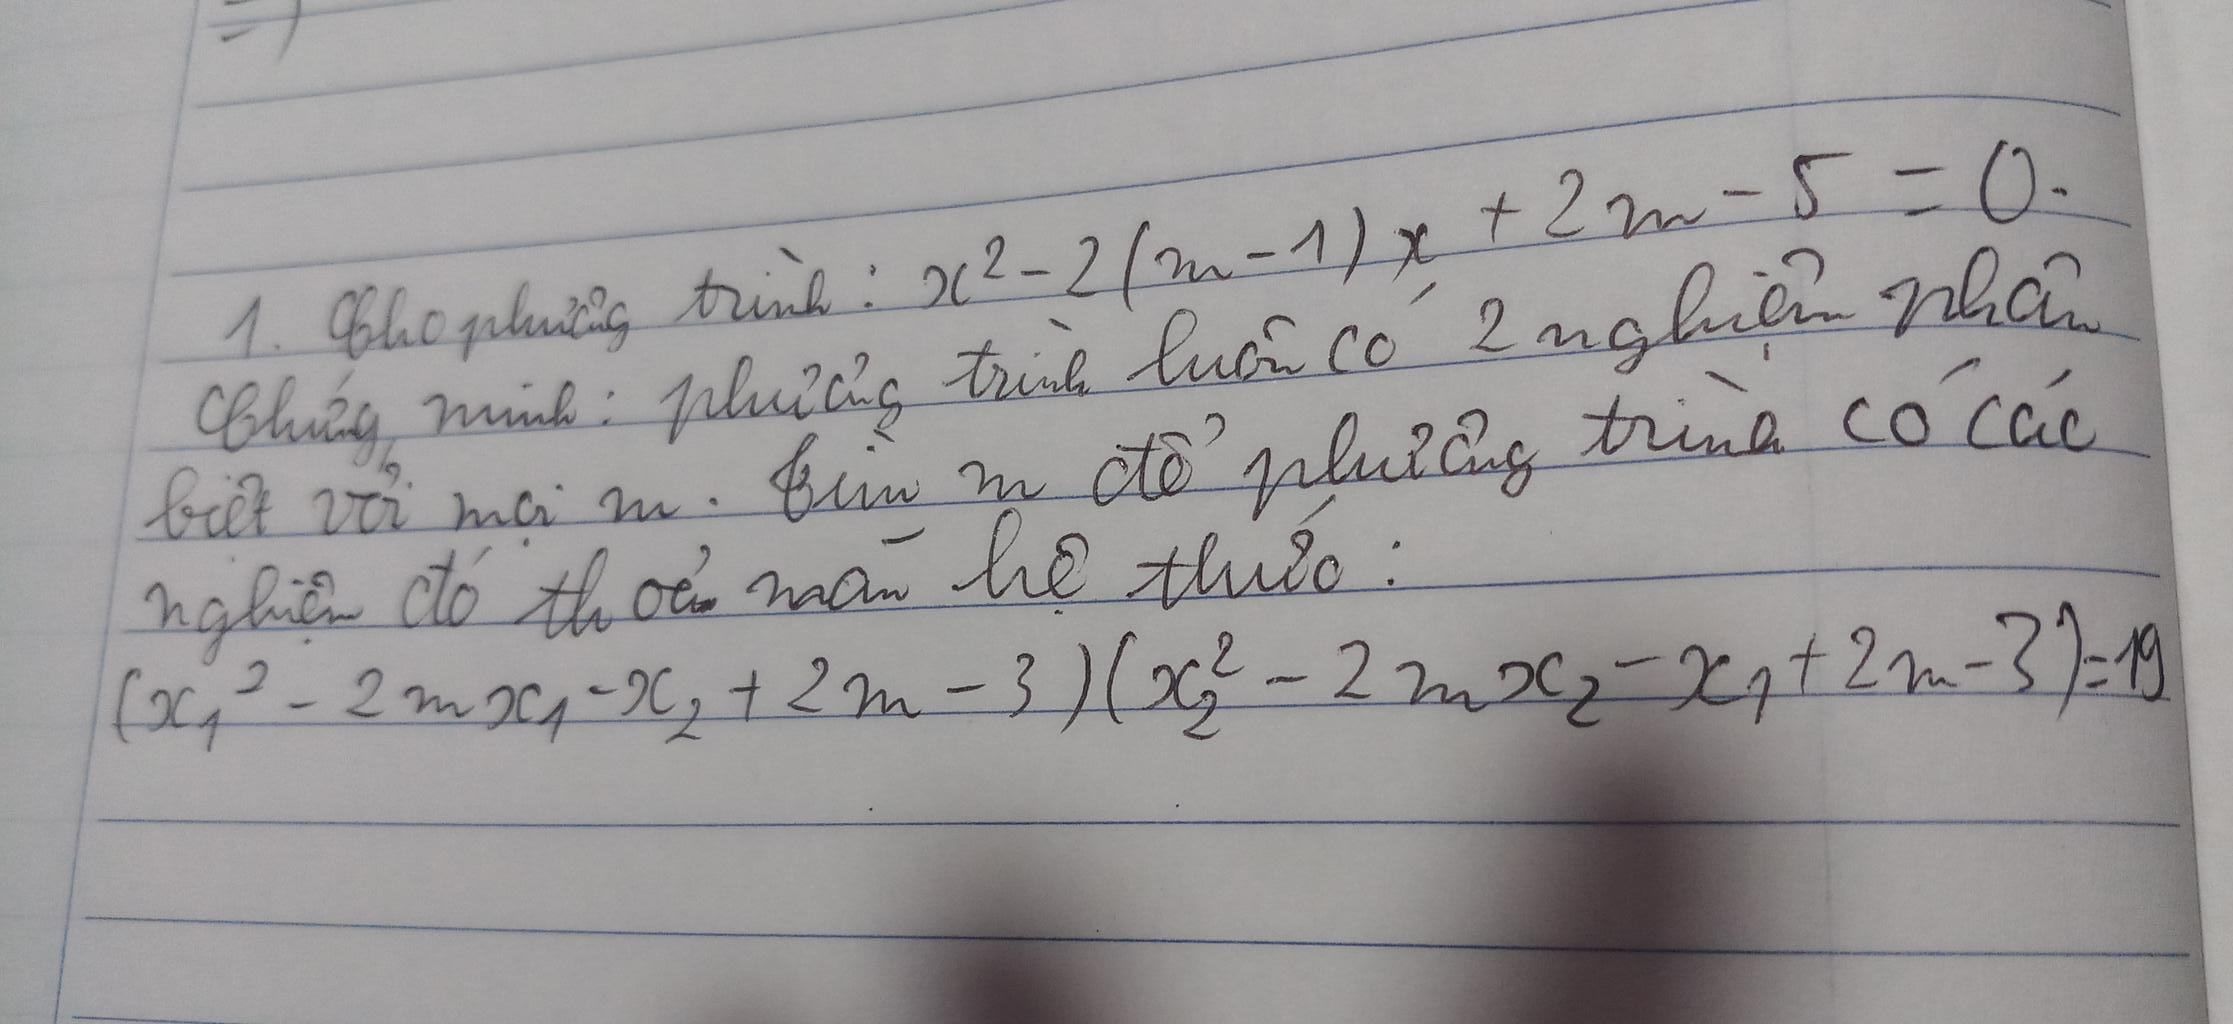 =)
1. Cho phương trình : x² - 2(m-1)x + 2m - 5 = 0.
Chứng minh : phương trình luôn có 2 nghiệm phân
biệt với mọi m. Tìm m để phương trình có các
nghiệm đó thoả mãn hệ thức :
(x₁² - 2mx₁ - x₂ + 2m - 3)(x₂² - 2mx₂ - x₁ + 2m - 3) = 19